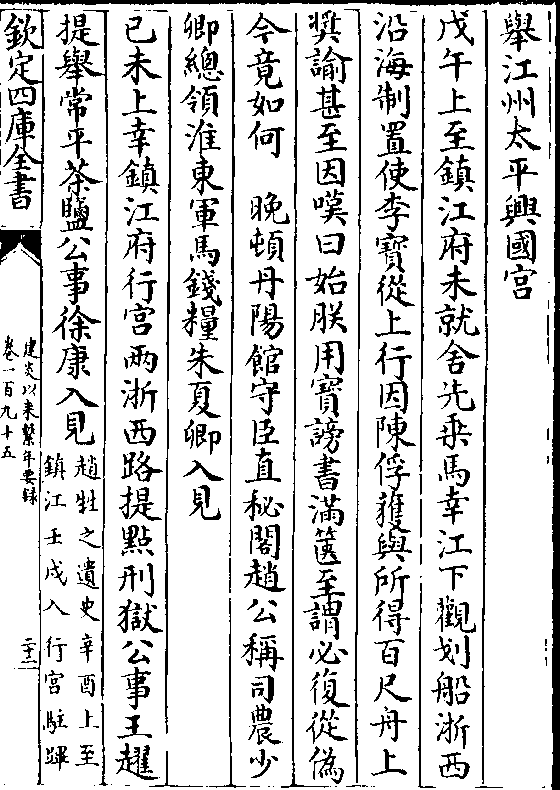 舉江州太平興國宫
戊午上至鎮江府未就舍先乗馬幸江下觀划船浙西
沿海制置使李寳從上行因陳俘獲與所得百尺舟上
奬諭甚至因嘆曰始朕用寳謗書滿篋至謂必復從偽
今竟如何　晚頓丹陽館守臣直秘閣趙公稱司農少
卿總領淮東軍馬錢糧朱夏卿入見
己未上幸鎮江府行宫兩浙西路提點刑獄公事王趯
提舉常平茶鹽公事徐康入見趙甡之遺史辛酉上至
鎮江壬戌入行宫駐蹕
欽定四庫全書
建炎以來繫年要録
卷一百九十五
二十二